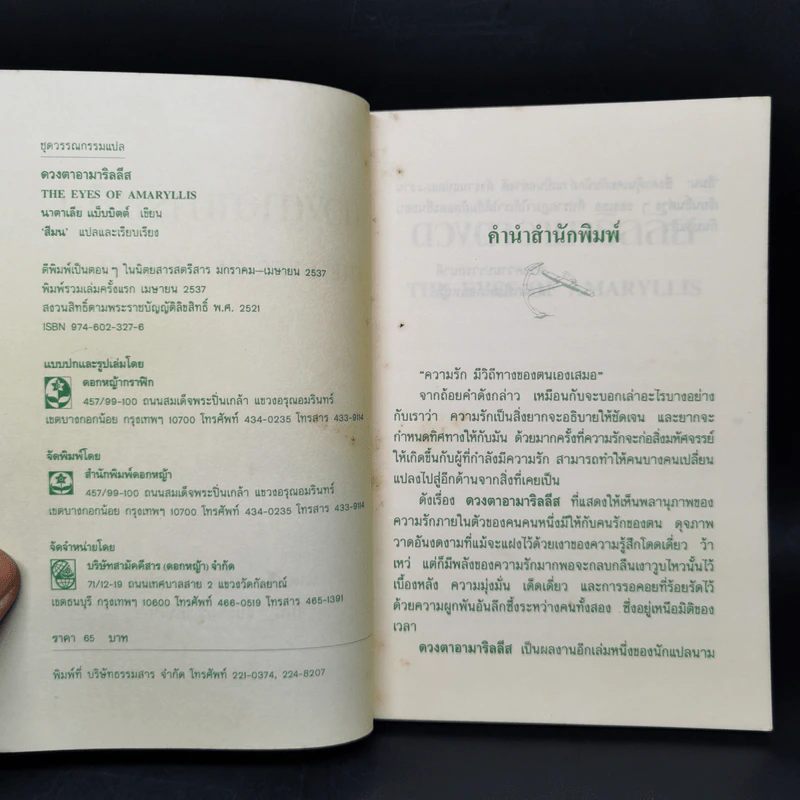 ชุดวรรณกรรมแปล
ดวงตาอามาริลลีส
THE EYES OF AMARYLLIS
นาตาเลีย แบ็บบิตต์ เขียน
'สีมน' แปลและเรียบเรียง
ตีพิมพ์เป็นตอน ๆ ในนิตยสารสตรีสาร มกราคม—เมษายน 2537
พิมพ์รวมเล่มครั้งแรก เมษายน 2537
สงวนสิทธิ์ตามพระราชบัญญัติลิขสิทธิ์ พ.ศ. 2521
ISBN 974-602-327-6
แบบปกและรูปเล่มโดย
ดอกหญ้ากราฟิก
457/99-100 ถนนสมเด็จพระปิ่นเกล้า แขวงอรุณอมรินทร์
เขตบางกอกน้อย กรุงเทพฯ 10700 โทรศัพท์ 434-0235 โทรสาร 433-9114
จัดพิมพ์โดย
สำนักพิมพ์ดอกหญ้า
457/99-100 ถนนสมเด็จพระปิ่นเกล้า แขวงอรุณอมรินทร์
เขตบางกอกน้อย กรุงเทพฯ 10700 โทรศัพท์ 434-0235 โทรสาร 433-9114
จัดจำหน่ายโดย
บริษัทสามัคคีสาร (ดอกหญ้า) จำกัด
71/12-19 ถนนเทศบาลสาย 2 แขวงวัดกัลยาณ์
เขตธนบุรี กรุงเทพฯ 10600 โทรศัพท์ 466-0519 โทรสาร 465-1391
ราคา 65 บาท
พิมพ์ที่ บริษัทธรรมสาร จำกัด โทรศัพท์ 221-0374, 224-8207
คำนำสำนักพิมพ์
"ความรัก มีวิถีทางของตนเองเสมอ"
จากถ้อยคำดังกล่าว เหมือนกับจะบอกเล่าอะไรบางอย่าง
กับเราว่า ความรักเป็นสิ่งยากจะอธิบายให้ชัดเจน และยากจะ
กำหนดทิศทางให้กับมัน ด้วยมากครั้งที่ความรักจะก่อสิ่งมหัศจรรย์
ให้เกิดขึ้นกับผู้ที่กำลังมีความรัก สามารถทำให้คนบางคนเปลี่ยน
แปลงไปสู่อีกด้านจากสิ่งที่เคยเป็น
ดังเรื่อง ดวงตาอามาริลลีส ที่แสดงให้เห็นพลานุภาพของ
ความรักภายในตัวของคนคนหนึ่งมีให้กับคนรักของตน ดุจภาพ
วาดอันงดงามที่แม้จะแฝงไว้ด้วยเงาของความรู้สึกโดดเดี่ยว ว้า
เหว่ แต่ก็มีพลังของความรักมากพอจะกลบกลืนเงาวูบไหวนั้นไว้
เบื้องหลัง ความมุ่งมั่น เด็ดเดี่ยว และการรอคอยที่ร้อยรัดไว้
ด้วยความผูกพันอันลึกซึ้งระหว่างคนทั้งสอง ซึ่งอยู่เหนือมิติของ
เวลา
ดวงตาอามาริลลีส เป็นผลงานอีกเล่มหนึ่งของนักแปลนาม